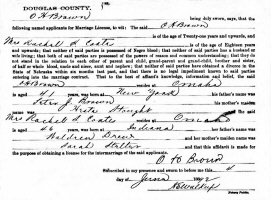 DOUGLAS COUNTY.
O H Brown being duly sworn, says, that the
following named applicants for Marriage License, to wit: The said O H Brown
is of the Age of Twenty-one years and upwards, and
Mrs Rachel D Coats is of the age of Eighteen years
and upwards; that neither of said parties is possessed of Negro blood; that neither of said parties has a husband or
wife living; that both of said parties are possessed of sound minds and are free from matrimonial engagements; that they
do not stand in the relation to each other of parent and child, grand-parent and grand-child, brother and sister,
of half or whole blood, uncle and niece, aunt and nephew; that neither of said parties has obtained a divorce in the
State of Nebraska within six months last past, and that there is no legal impediment known to said parties
entering into the marriage contract. That to the best of affiant's knowledge, information and belief, the said
O H Brown resides in Omaha
aged 41 years, was born at New York his father's name was
Peter J Brown his mother's maiden
name was and the said
Mrs Rachel D Coats resides in Omaha
aged 46 years, was born at Indiana her father's name was
Waldren Drew her mother's maiden name was
Sarah and that this affidavit is made for
the purpose of obtaining a license for the intermarriage of the said applicants.
O H Brown
Subscribed in my presence and sworn to before me, this
day of June
Notary Public.